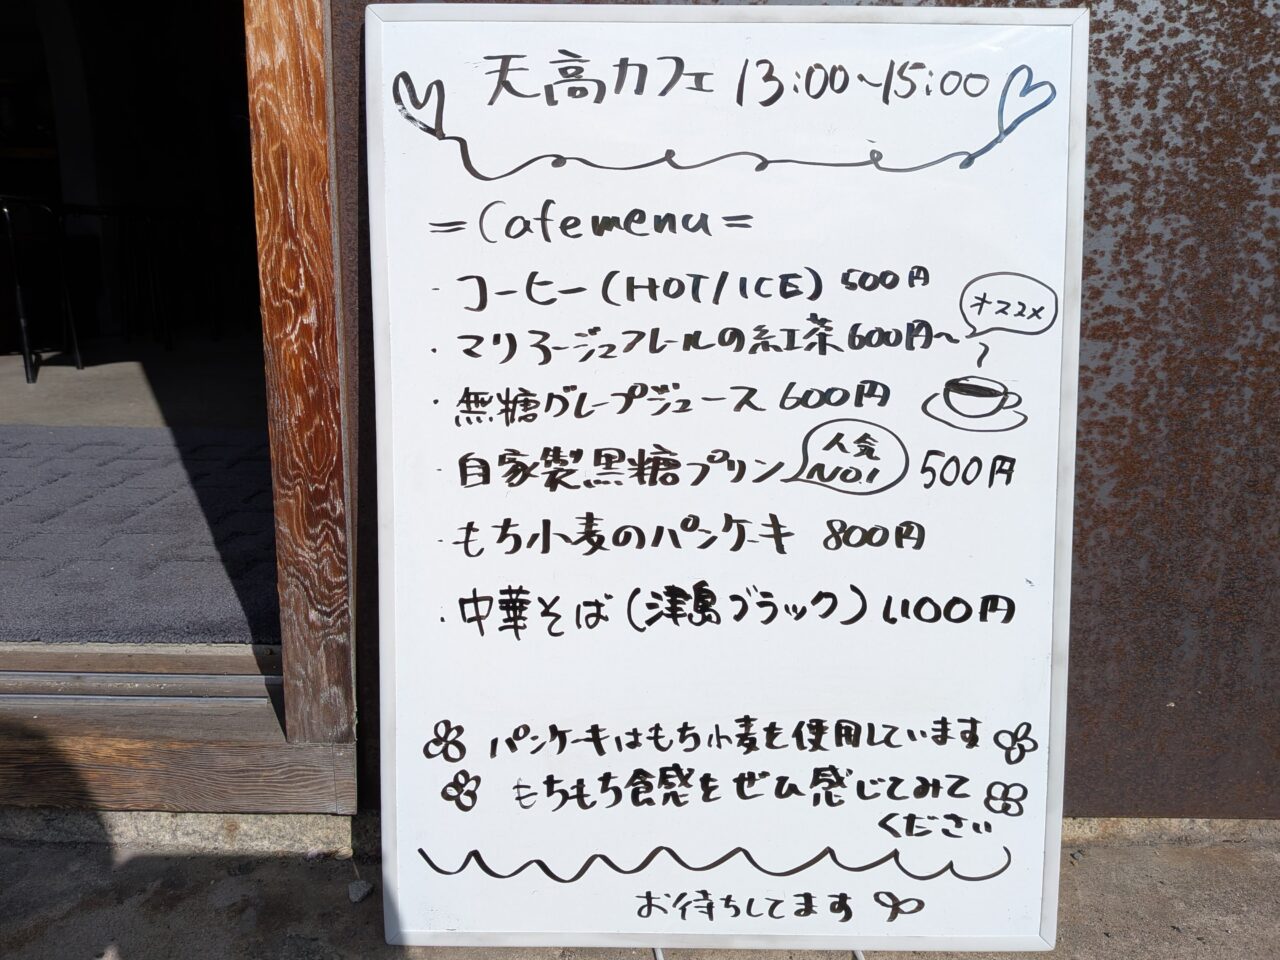 天高カフェ 13:00〜15:00
=Cafe menu=
・コーヒー(HOT/ICE) 500円
オススメ
・マリアージュフレールの紅茶 600円〜
・無糖グレープジュース 600円
・自家製黒糖プリン 人気NO.1 500円
・もち小麦のパンケーキ 800円
・中華そば(津島ブラック) 1,100円
パンケーキはもち小麦を使用しています
もちもち食感をぜひ感じてみて
ください
お待ちしてます